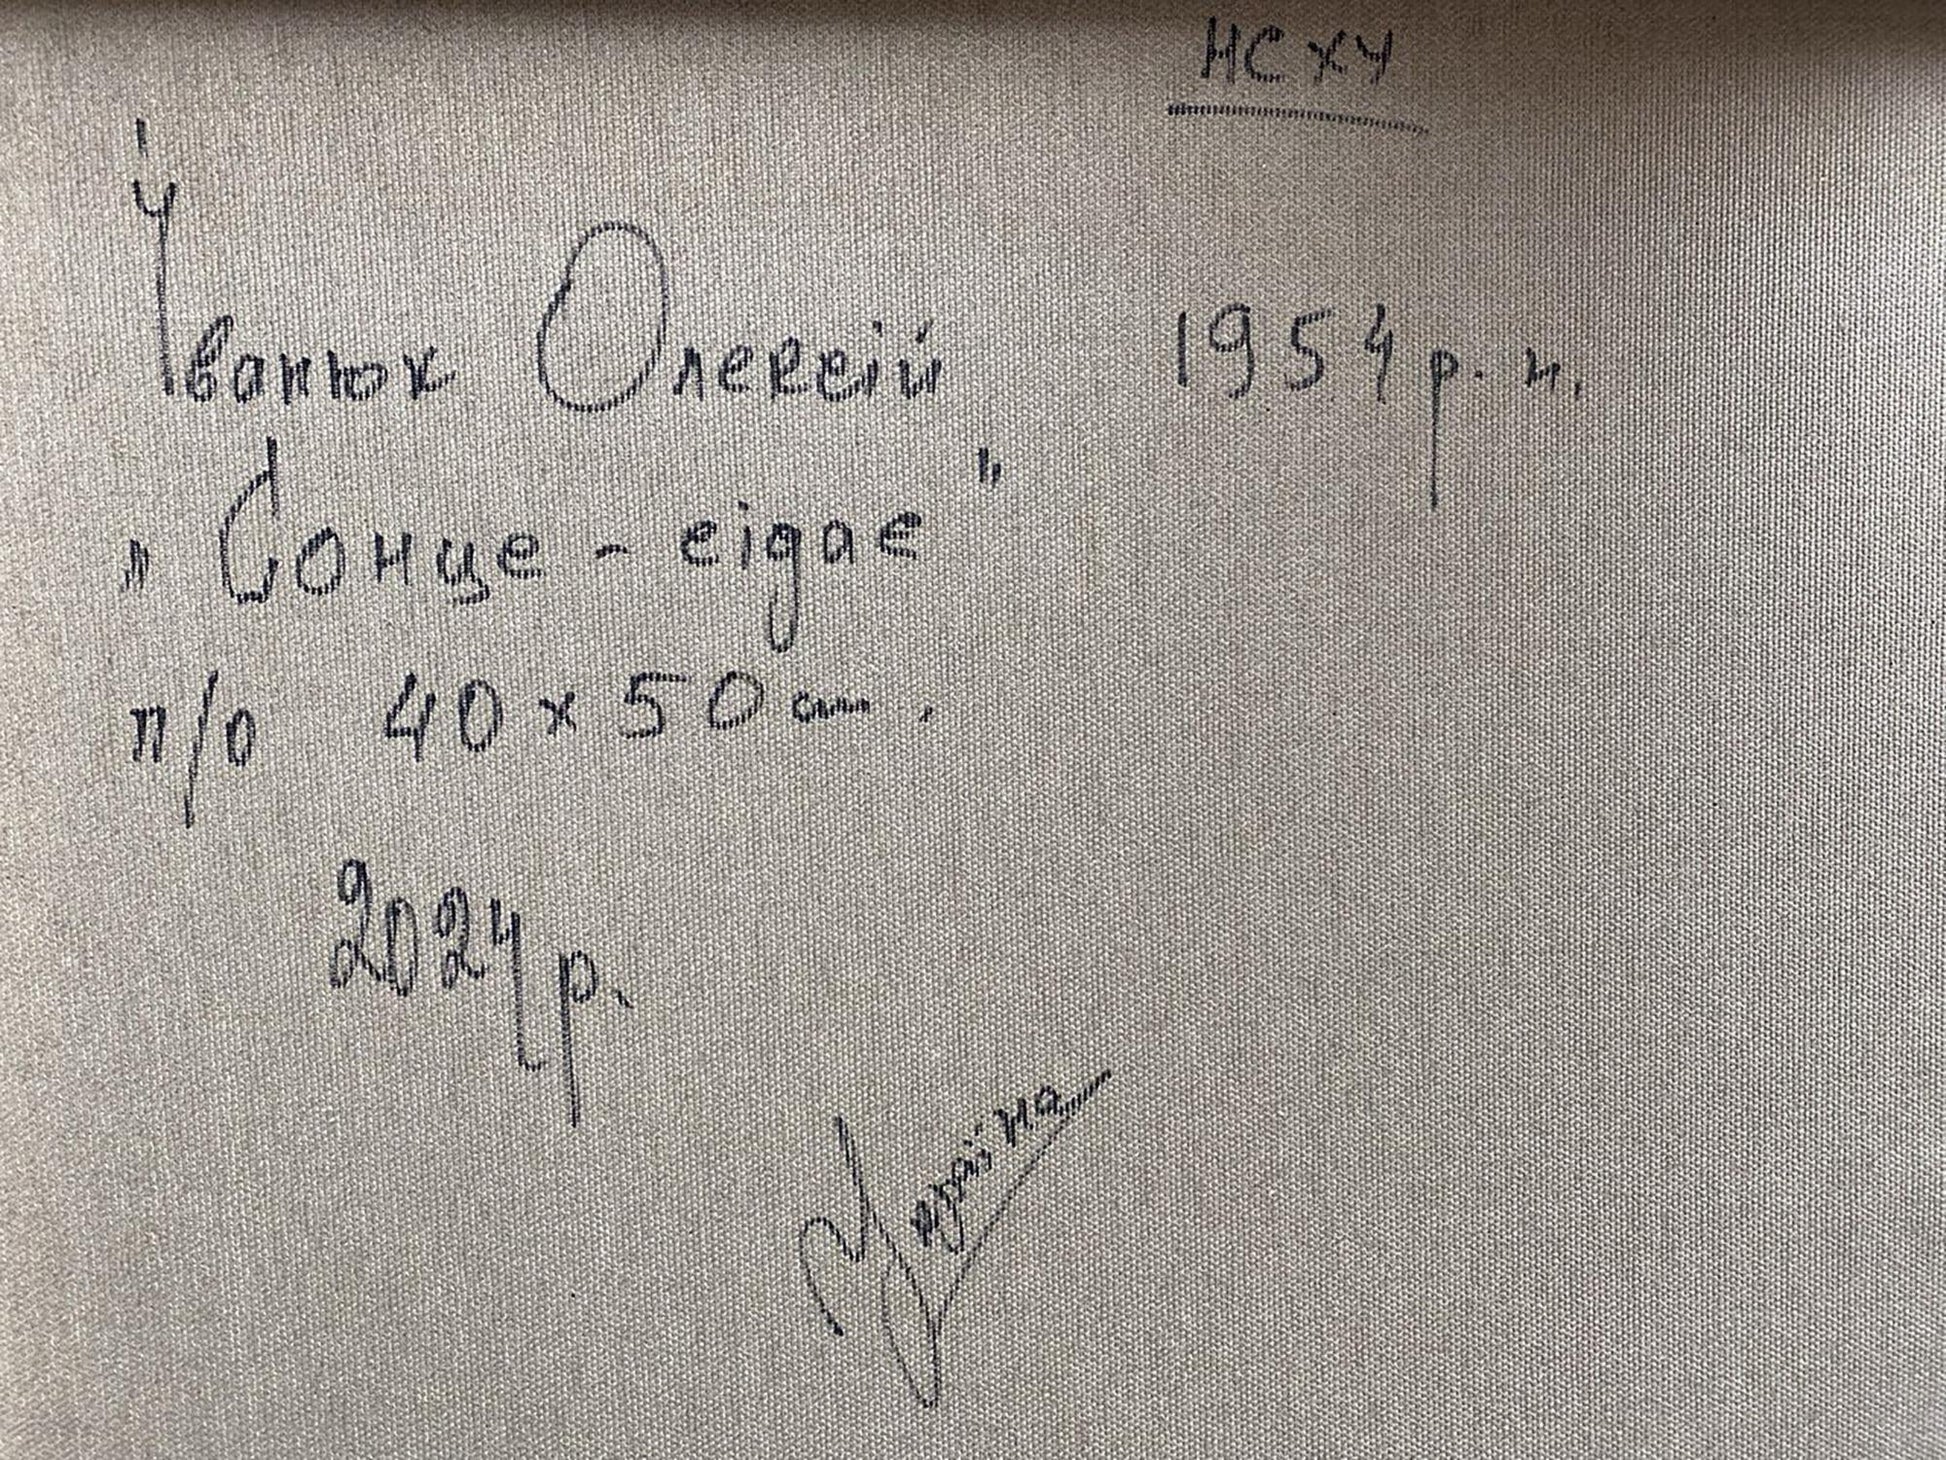 НСХУ
Іванюк Олексій 1954 р. н.
„Сонце - сідає"
п/о 40 х 50 см.
2024 р.
Україна